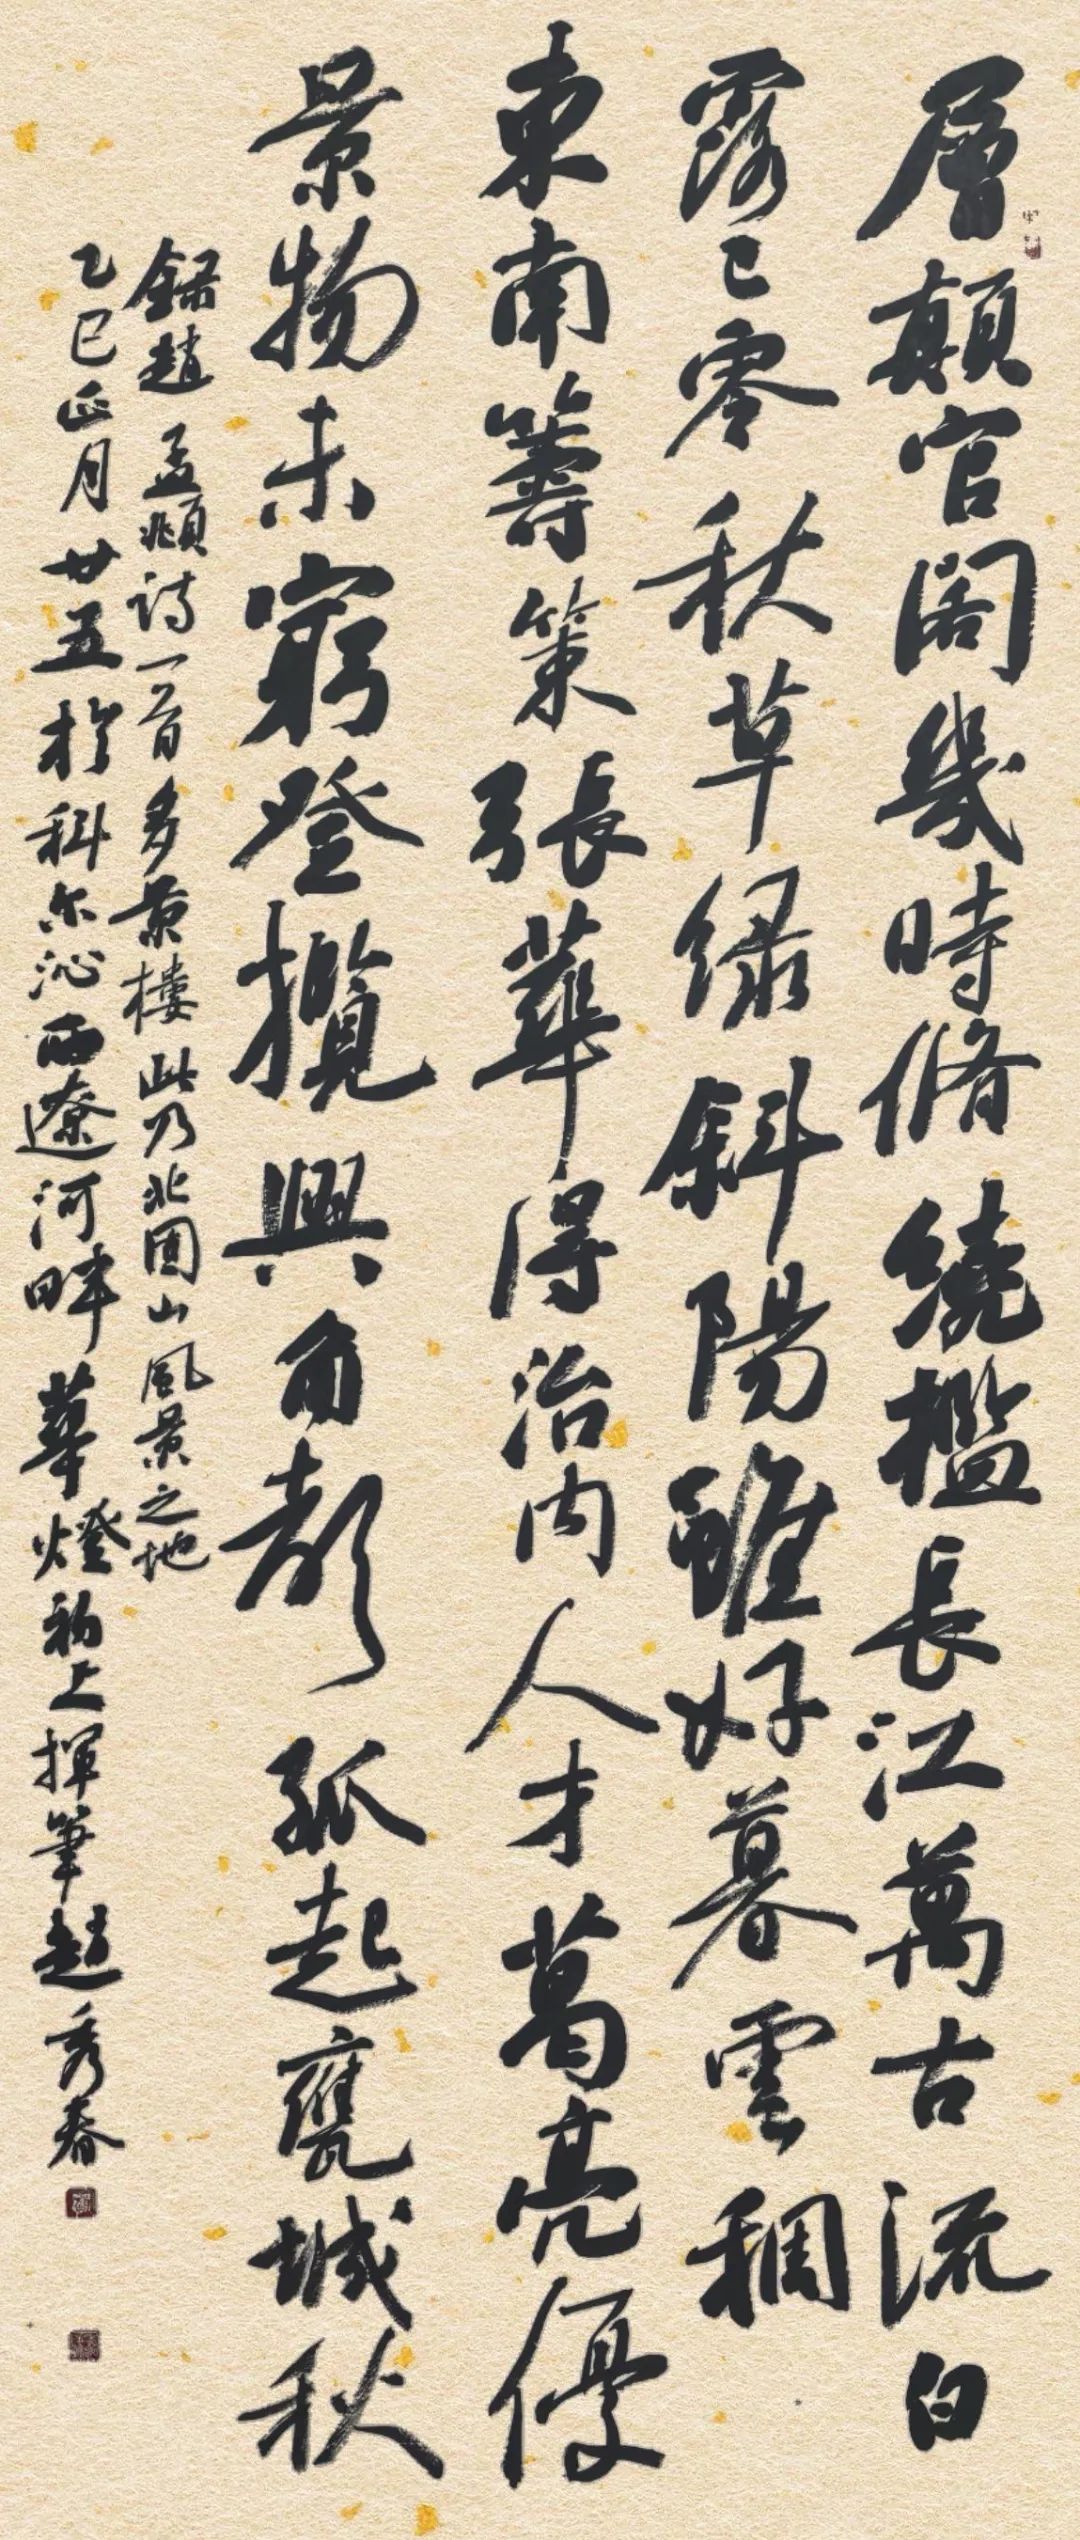 層顛官閣幾時脩繞檻長江萬古流白
露已零秋草綠斜陽雖好暮雲稠
東南籌策張華得治內人才葛亮優
景物未窮登攬興角聲孤起甕城秋
錄趙孟頫詩一首多景樓此乃北固山風景之地
乙巳正月廿五於科尔沁西遼河畔華燈初上揮筆趙秀春